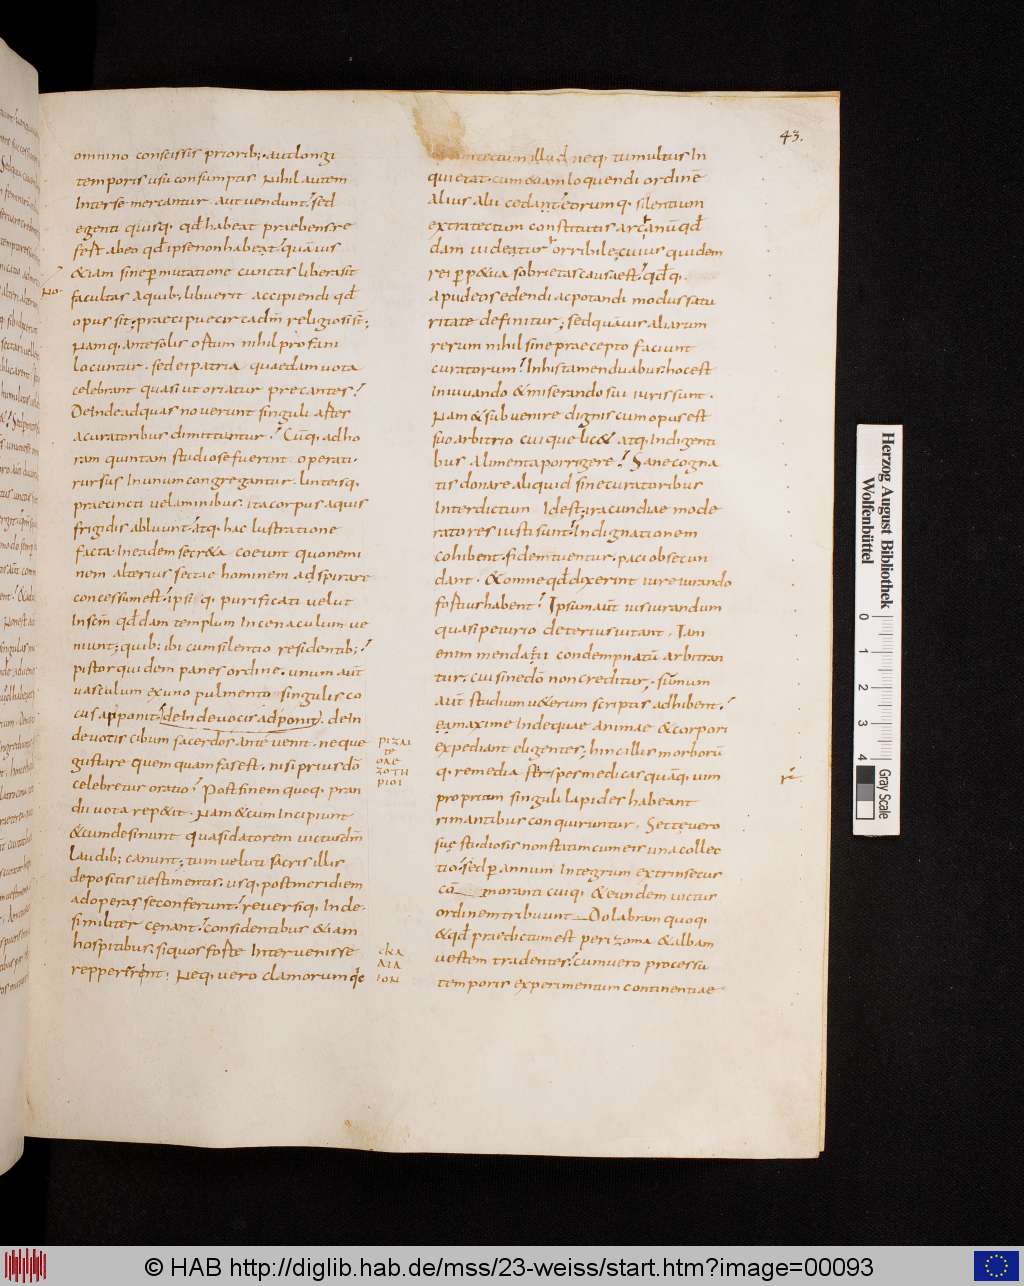 43.
omnino conscissis priorib; aut longi
temporis usu consumptis Nihil autem
Inter se mercantur aut uendunt sed
egenti quisq. qđ habeat praebens re
fert abeo qđ ipse non habeat quāuis
&iam sine permutatione cunctis libera sit
facultas Aquib; libuerit accipiendi qđ
opus sit; praecipue circa dm̄ religiosi st̄;
Namq. ante solis ortum nihil profani
locuntur. sed ei patria quaedam uota
celebrant quasi ut oriatur precantes
Deinde ad quas nouerunt singuli artes
a curatoribus dimittuntur. Cūq. ad ho
ram quintam studiose fuerint operati.
rursus In unum congregantur. linteisq.
praecincti uelaminibus. ita corpus aquis
frigidis abluunt. atq. hac lustratione
facta. In eadem secr&a coeunt quo nemi
nem alterius sectae hominem adspirare
concessum est. ipsi q. purificati uelut
In scm̄ qđdam templum In cenaculum ue
niunt; quib; ibi cum silentio residentib;
pistor quidem panes ordine. unum aūt
uasculum ex uno pulmento singulis co
cus apponit. deIndeuocis adponit. deIn
deuotis cibum sacerdos ante uenit. neque
gustare quemquam fas est. nisi prius dō
celebretur oratio. Post finem quoq. pran
dii uota rep&it. Nam & cum Incipiunt
& cum desinunt quasi datorem uictus dm̄
laudib; canunt; tum ueluti sacris illis
depositis uestimentis. usq. post meridiem
ad operas se conferunt. reuersiq. Inde.
similiter cenant. considentibus &iam
hospitibus. si quos forte Interuenisse
reppererint. Neq. uero clamorum qđ
ΡΙΖΑΙ
ΤΕ
ΖΟΤΗ
ΡΙΟΙ
CΚΑ
ΛΙΑ
ΙΟΝ
tectum illud neq. tumultus In
quietat. cum &iam loquendi ordinē
alius alii cedant. eorumq. silentium
extra tectum constitutis arcanū qđ
dam uideatur orribile; cuius quidem
rei perp&ua sobrietas causa est. qđq.
apud eos edendi ac potandi modus satu
ritate definitur; sed quāuis aliarum
rerum nihil sine praecepto faciunt
curatorum. In his tamen duabus. hoc est
In iuuando & miserando sui iuris sunt.
Nam & subuenire dignis cum opus est
suo arbitrio cuique lic& atq. Indigenti
bus alimenta porrigere. Sane cogna
tis donare aliquid sine curatoribus
Interdictum Id est; iracundiae mode
ratores iusti sunt. Indignationem
cohibent. fidem tuentur. paci obsecun
dant. & omne qđ dixerint iure iurando
fortius habent. Ipsum aūt iusiurandum
quasi periurio deterius uitant. Iam
enim mendatii condempnatū arbitran
tur; cui sine dō non creditur. sūmum
aūt studium u&erum scriptis adhibent.
ea maxime Inde quae animae & corpori
expediant eligentes; hinc illis morborū
q. remedia stirpes medicas quāq. uim
propriam singuli lapides habeant
rimantibus conquiruntur. Sectę uero
suę studiosis non statim cum eis una collec
tio. sed per annum Integrum extrinsecus
cō moranti cuiq. & eundem uictus
ordinem tribuunt Dolabram quoq.
& qđ praedictum est perizoma & albam
uestem tradentes. cum uero processu
temporis experimentum continentiae
Herzog August Bibliothek
Wolfenbüttel
0 1 2 3 4
Gray Scale
© HAB http://diglib.hab.de/mss/23-weiss/start.htm?image=00093